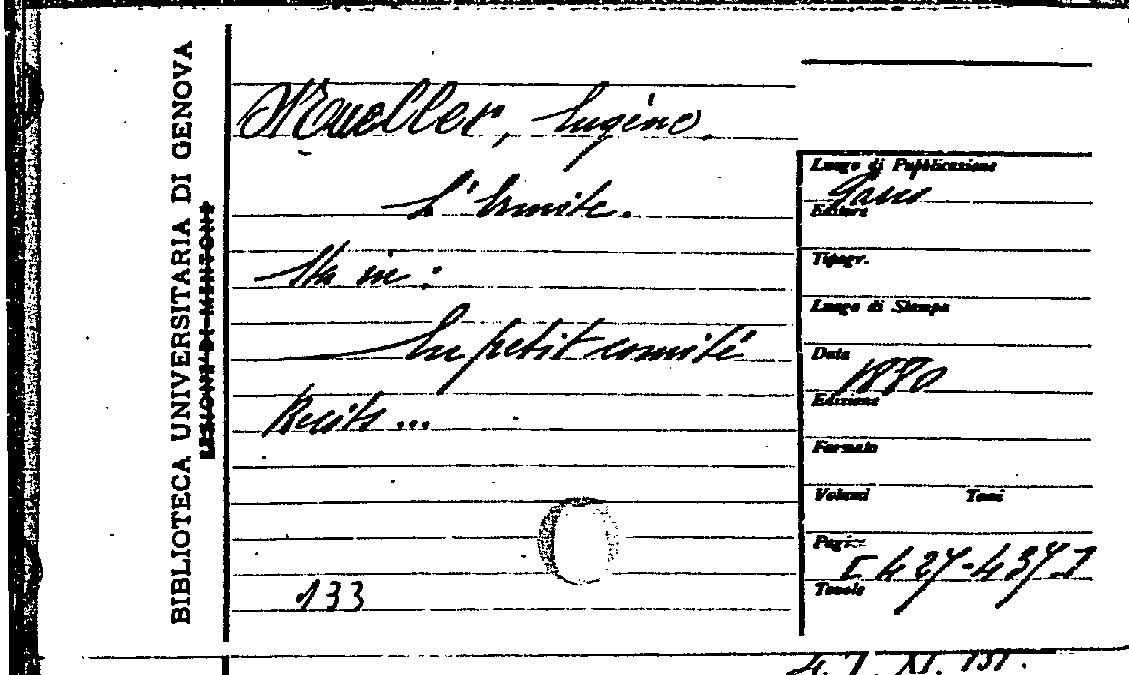 BIBLIOTECA UNIVERSITARIA DI GENOVA
Mueller, Eugène.
L'Ermite.
Sta in:
En petit comité
Récits...
133
Luogo di Pubblicazione
Paris
Editore
Tipogr.
Luogo di Stampa
Data
1880
Edizione
Formato
Volumi Tomi
Pagine
[427-437]
Tavole